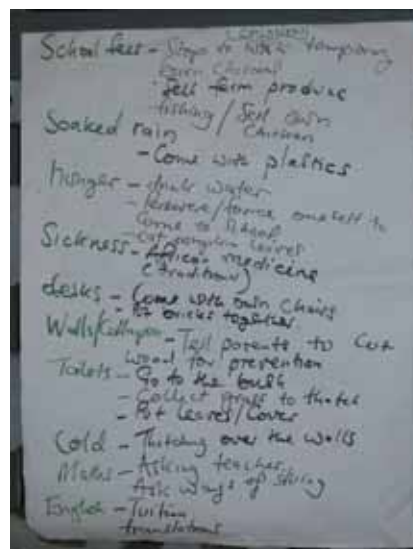 School fees - Stops to work temporary
burn charcoal
- Sell farm produce
- fishing / Sell own
chicken
Soaked rain
- Come with plastics
Hunger - drink water
- persevere/force oneself to
come to school
- eat pumpkin leaves
Sickness - African medicine
(traditional)
desks - Come with own chairs
- Put bricks together
Walls/Collapse - Tell parents to cut
wood for prevention
Toilets - Go to the bush
- Collect grass to thatch
- Put leaves/cover
Cold - Thatching over the walls
Maths - Asking teacher
Ask ways of solving
English - Tuition
translations